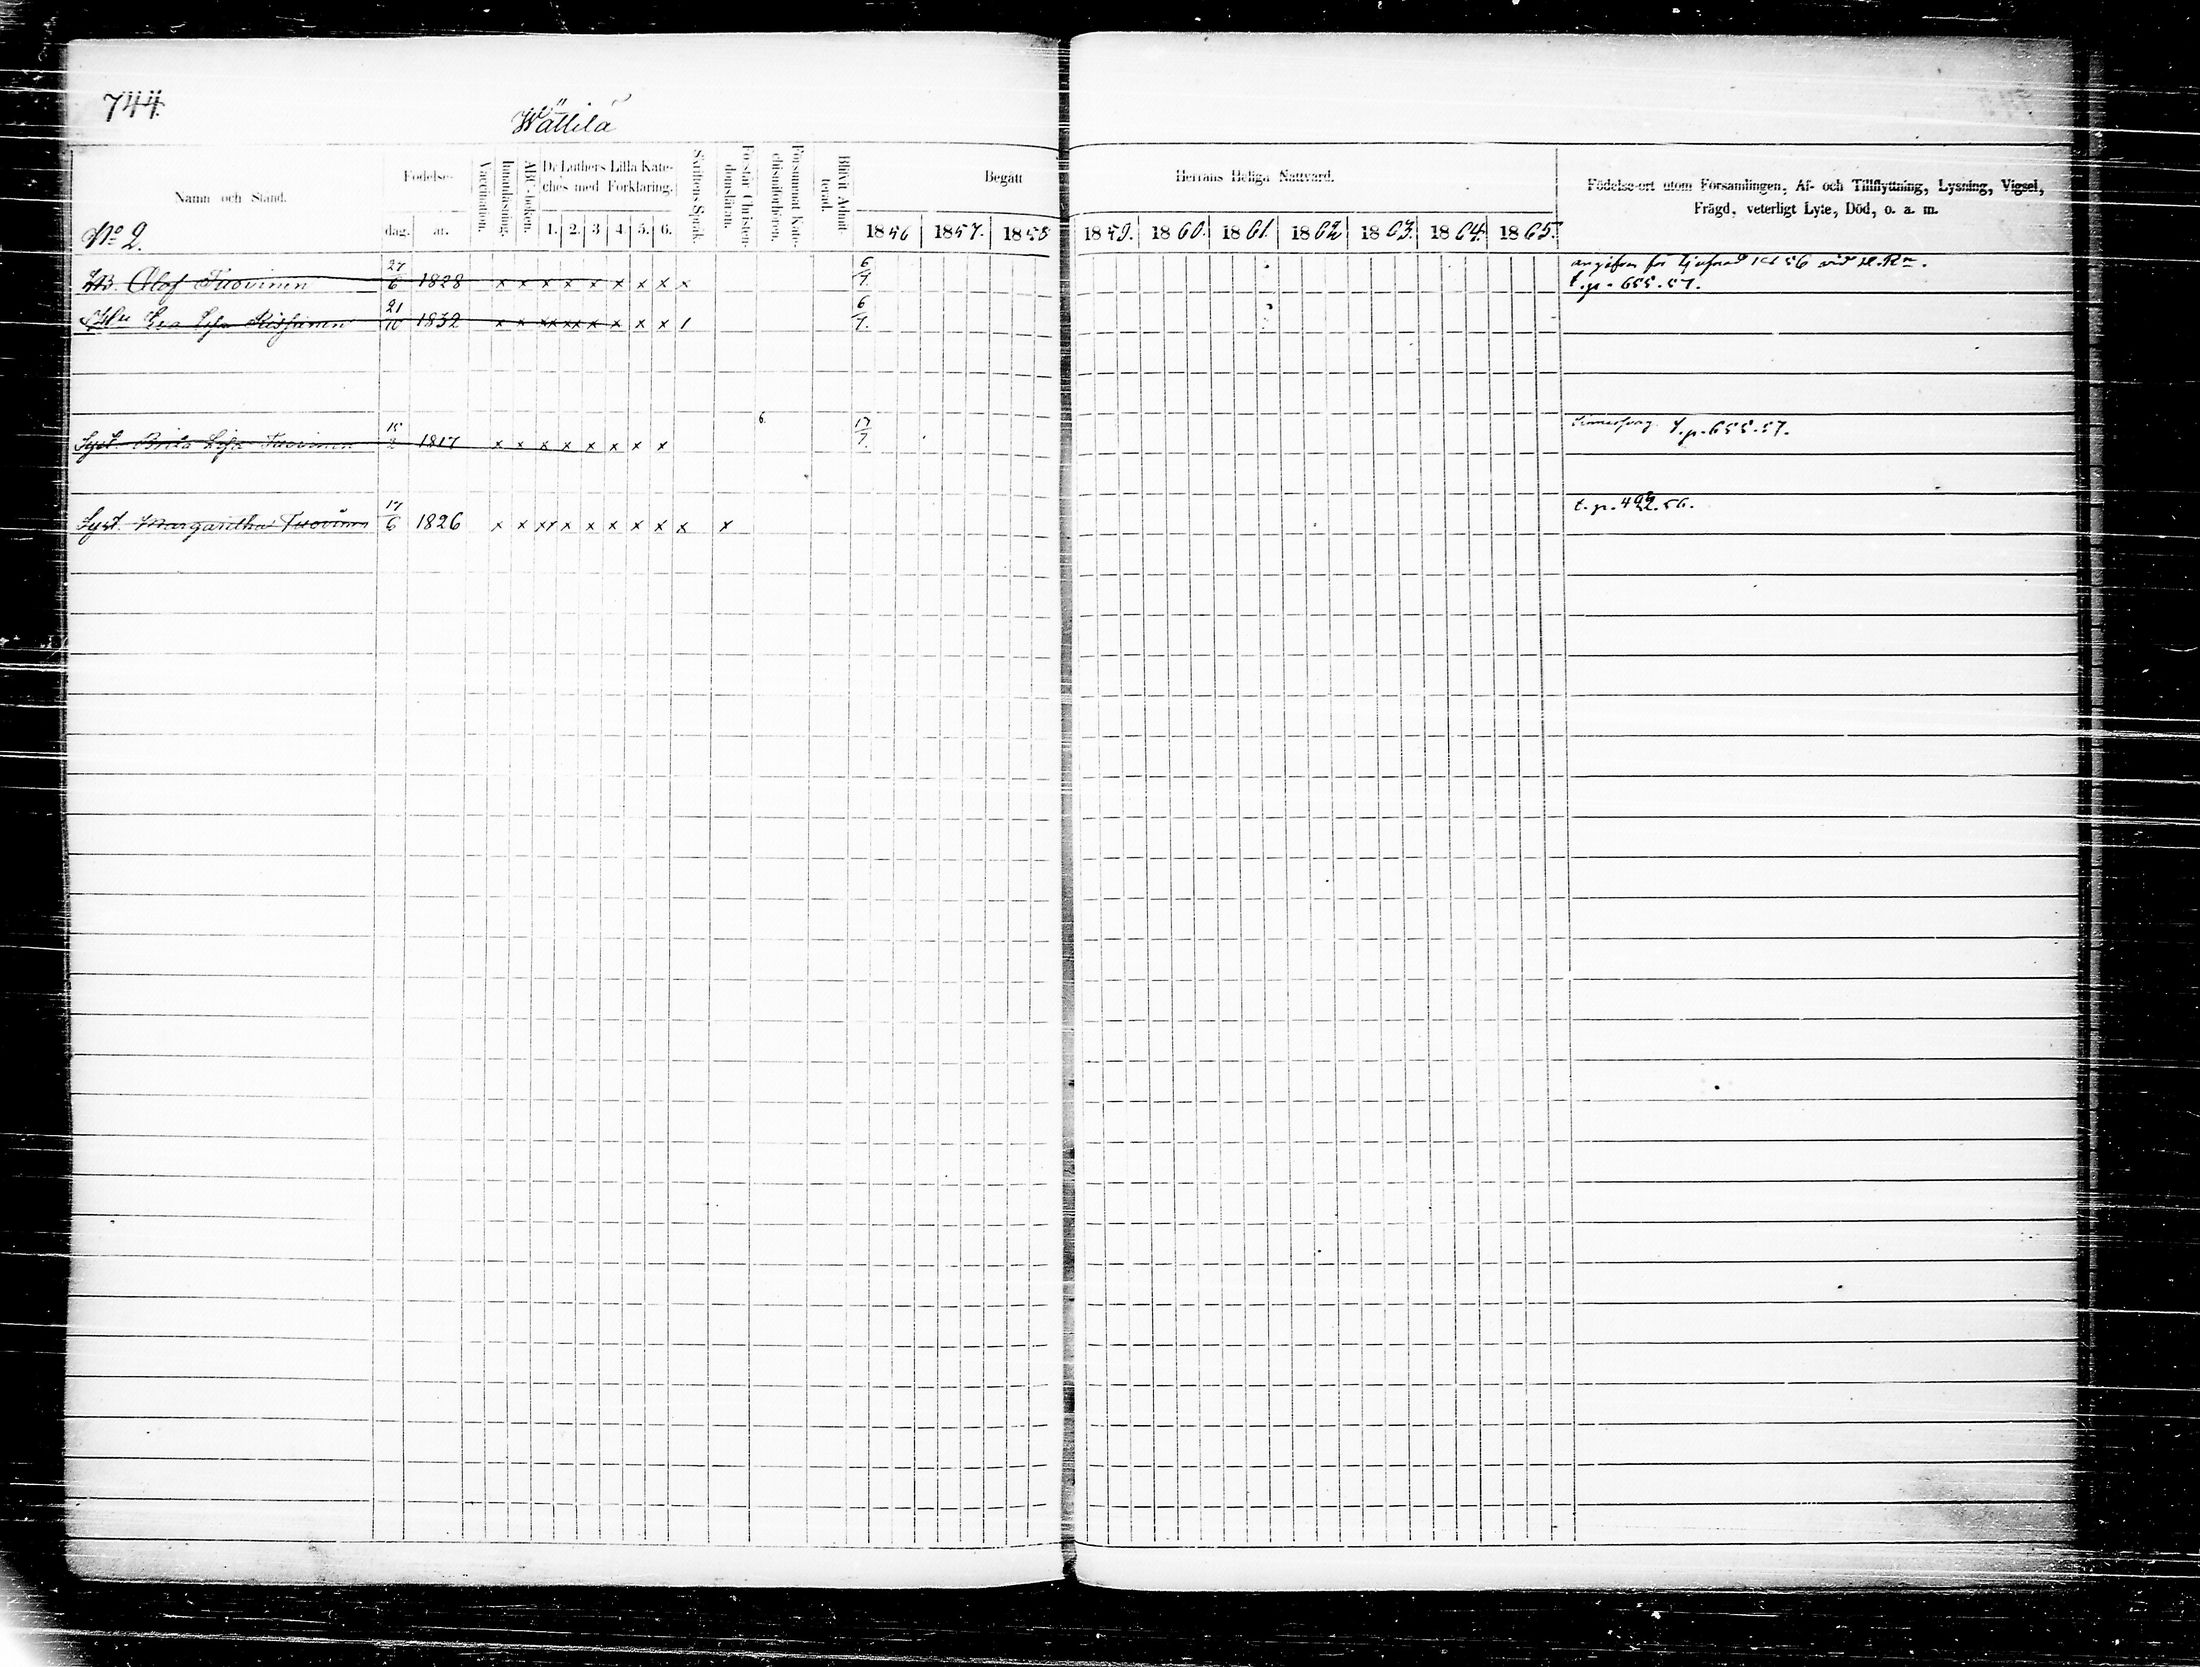 744.
Wättilä
Namn och Stånd.
Födelse-
dag. år.
Vaccination.
Innanläsning.
ABC-boken.
Dr Luthers Lilla Kate-
ches med Förklaring.
1. 2. 3 4. 5. 6.
Skriftens Språk.
Förstår Christen-
domsläran.
Försummat Kate-
chismiförhören.
Blifvit Admit-
terad.
Begått
Herrans Heliga Nattvard.
1856 1857. 1858 1859. 1860. 1861. 1862 1863. 1864. 1865.
Födelse-ort utom Församlingen, Af- och Tillflyttning, Lysning, Vigsel,
Frägd, veterligt Lyte, Död, o. a. m.
No 2.
Olof Tuovinen 27/6 1828 x x x x x x x x x 6/7.
56 vid H.Rn.
t.p. 655.57.
Eva Lisa 21/10 1832 x x xx xx x x x x / 6/7.
Syst. Brita Lisa Tuovinen 15/2 1817 x x x x x x x x 6. 17/7.
t.p. 655.57.
Syst. Margaretha Tuovinen 17/6 1826 x x xx x x x x x x x
t.p. 492.56.